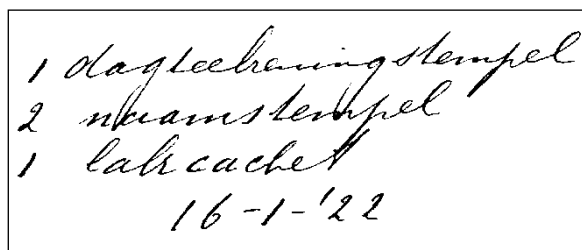 1 dagteekeningstempel
2 naamstempel
1 lakcachet
16-1-'22